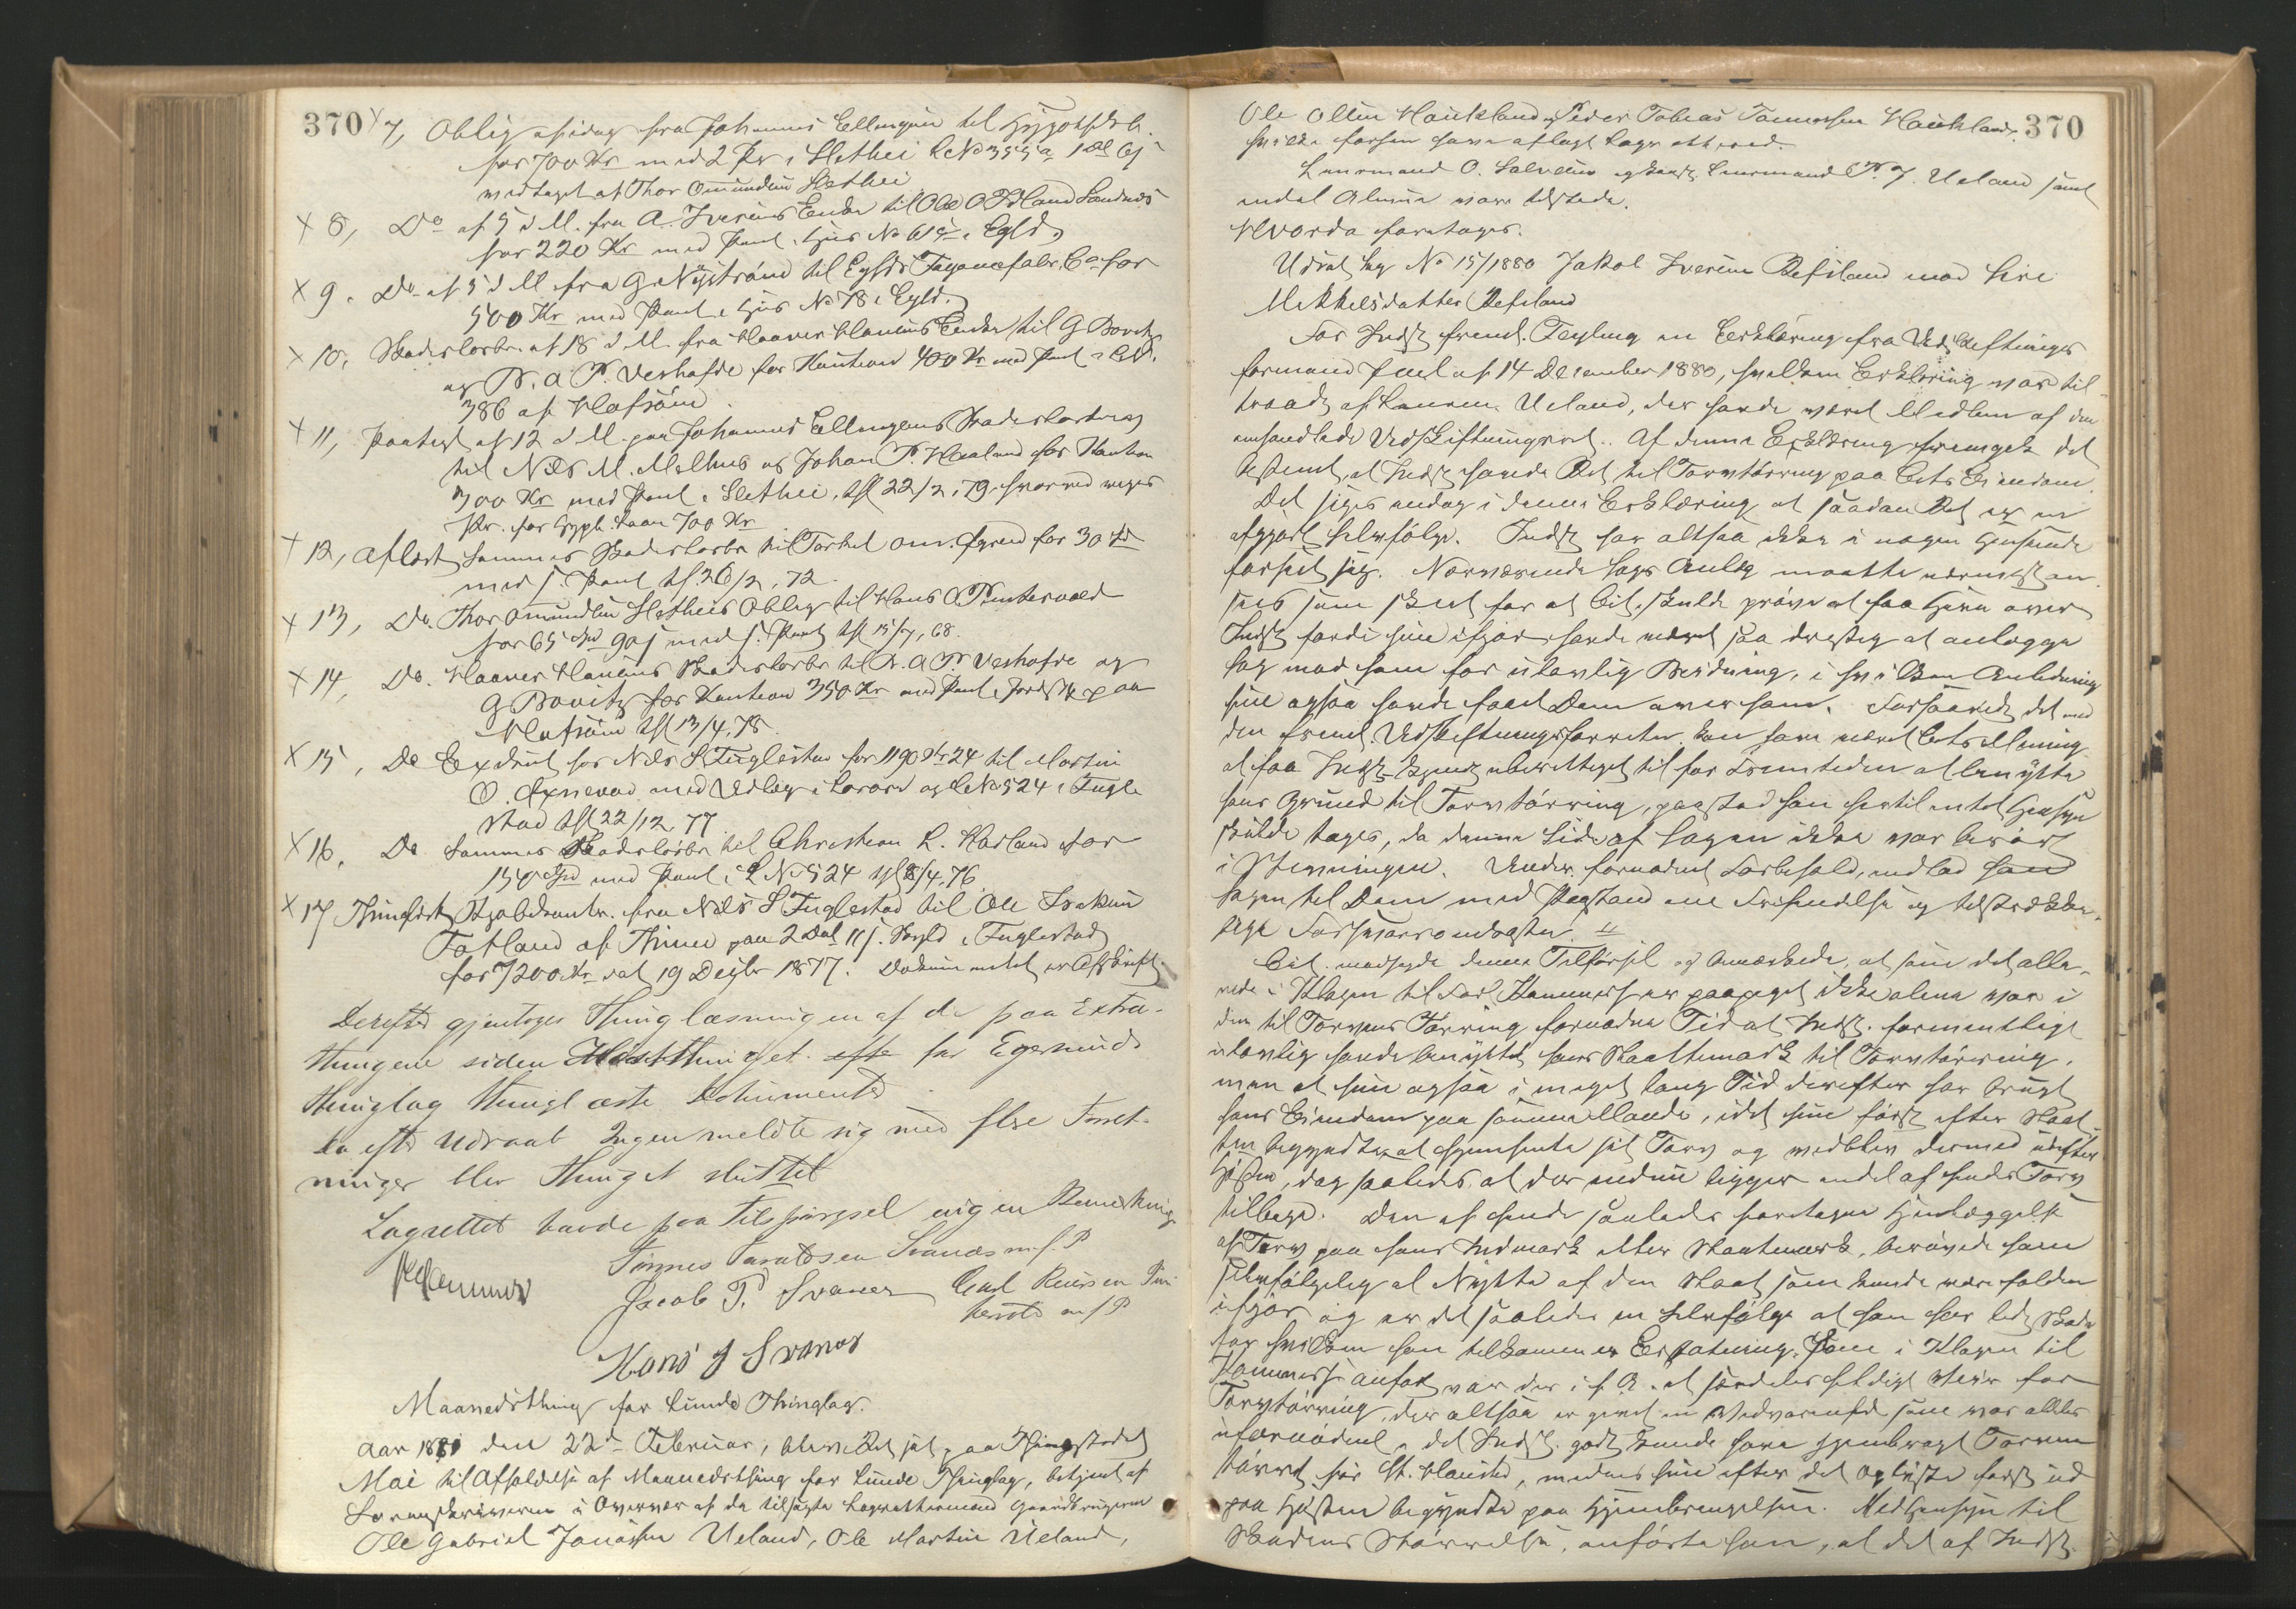 370
x 7, Oblig af idag fra Johannes Ellingsen til Hypothekb.
for 700 Kr med 2 Pr i Slethei LNo 355a 1 Dl 6 ſ
vedtaget af Thor Omundsen Slethei
x 8, Do af 5 d M. fra A. Iversens Enke til Ole O Sandnes
for 220 Kr med Pant i Huus No 61 i Egsd.
x 9. Do af 5 d M fra G Nyström til Egsds Fayancefabr. Co for
500 Kr med Pant i Huus No 78 i Egsd.
x 10, Skadeslosbr. af 18 d M. fra Haaver Hansens Enke til G Bovitz
og B. A P. Veshofde for Kaution 400 Kr med Pant i LNo
386 af Hafsöen
x 11, Paategn af 12 d M. paa Johannes Ellingsens Skadeslosbrev
til Nils M. Melhus og Johan P. Haaland for Kaution
300 Kr med Pant i Slethei, tgl 22/2, 79, hvorved viges
Pr. for Hypth. Laan 700 Kr
x 12, Aflæst Sammes Skadeslosbr til Torkel Om. for 30 Spd
med s. Pant tgl 26/2, 72.
x 13, Do. Thor Omundsen Sletheis Oblig til Hans O
for 65 Spd 90 ſ med s. Pant tgl 15/7, 68.
x 14, Do. Haaver Hansens Skadeslosbr til B. A P. Veshofde og
G Bovitz for Kaution 350 Kr med Pant i Jordstk paa
Hafsöen tgl 13/4, 78.
x 15, Do Exdrut hos Nils S Fuglestad for 1190 Kr 24 til Martin
O. med Udlæg i Losøre og LNo 524 i Fugle
stad tgl 22/12, 77.
x 16, Do Sammes Skadeslösbr til Christian L. Harland for
150 Spd med Pant i LNo 524 tgl 8/4, 76
x 17 Thinglæst Kjøbekontr. fra Nils S Fuglestad til Ole Isaksen
Fotland af Thime paa 2 Dal 11 ſ. Skyld i Fuglestad
for 7200 Kr dat 19 Decbr 1877. Dokumentet er Afskrift.
Derefter gjentoges Thinglæsningen af de paa Extra-
thingene siden Høstthinget for Egersunds
Thinglag thinglæste Dokumenter
Da efter Udraab Ingen meldte sig med flere Forret-
ninger blev Thinget sluttet
Lagrettet havde paa Tilspørgsel ingen Bemærkning
Tønnes Svanes m. f. P
Jacob T. Svanes
m f P
Hans J Svanes
Maanedsthing for Lunde Thinglag.
Aar 1881 den 22de Februar, blev Ret sat paa Thingstedet
Moi til Afholdelse af Maanedsthing for Lunde Thinglag, betjent af
Sorenskriveren i Overvær af de tilsagte Lagrettesmænd Gaardbrugerne
Ole Gabriel Jonassen Ueland, Ole Martin Ueland,
370
Ole Olsen Haukland, Peder Tobias Tønnessen Haukland,
hvilke forhen have aflagt Lagretteed.
Lensmand O. Salvesen og Lensmand P. J. Ueland samt
endel Almue vare tilstede.
Hvorda foretoges.
Udsat Sag No 15/1880 Jakob Iversen Refsland mod Siri
Mikkelsdatter Refsland
For Indst fremst. Feyling en Erklæring fra Udskiftnings
formand af 14 December 1880, hvilken Erklæring var til
traadt af Lensm. Ueland, der havde været Medlem af den
omhandlede Udskiftningsret. Af denne Erklæring fremgik det
bestemt, at Indst havde Ret til Torvtørring paa Cits Eiendom.
Det siges endog i denne Erklæring at saadan Ret er en
afgjort Selvfølge. Indst har altsaa ikke i nogen Henseende
forseet sig. Nærværende Sags Anlæg maatte nærmest an
sees som skeet for at Cit. skulde prøve at faa Hævn over
Indst fordi hun ifjor havde været saa dristig at anlægge
Sag mod ham for ulovlig Beitning, i hvilken Anledning
hun ogsaa havde faaet Dom over ham. Forsaavidt det ved
den fremst. Udskiftningsforretn. kan have været Cits Mening
at faa Indst kjendt uberettiget til for Fremtiden at benytte
hans Grund til Torvtørring, paastod han hertil intet Hensyn
skulde tages, da denne Side af Sagen ikke var berørt
i Stevningen. Under fornødent Forbehold, indlod han
Sagen til Dom med Paastand om Frifindelse og tilstrække-
lige Forsvarsomkostn.
Cit. modsagde denne Tilførsel og bemærkede, at som det alle-
rede i Klagen til Forl.kommiss. er paapeget ikke alene var i
den til Torvens Tørring fornødne Tid at Indst. formentlig
ulovlig havde benyttet hans Slaattemark til Torvtørring,
men at hun ogsaa i meget lang Tid derefter har brugt
hans Eiendom paa samme Maade, idet hun først efter Slaat-
ten begyndte at hjemhente sit Torv og vedblev dermed udefter
Høsten, dog saaledes, at der endnu ligger endel af hendes Torv
tilbage. Den af hende saaledes foretagne Henlæggelse
af Torv paa hans Indmark eller Slaatmark, berøvede ham
selvfølgelig al Nytte af den Slaat som kunde være falden
ifjor og er det saaledes en Selvfølge at han har lidt Skade
for hvilken han tilkommer Erstatning. Som i Klagen til
Kommiss. anført var der i f. A. et særdeles heldigt Veir for
Torvtørring, der altsaa er givet en Vedvarenhed som var aldeles
ufornøden, idet Indst. godt kunde have hjembragt Torven
tørret før St. Hanstid, medens hun efter det oplyste først ud
paa Høsten begyndte paa Hjembringelsen. Med Hensyn til
Skadens Størrelse, anførte han, at det af Indst.